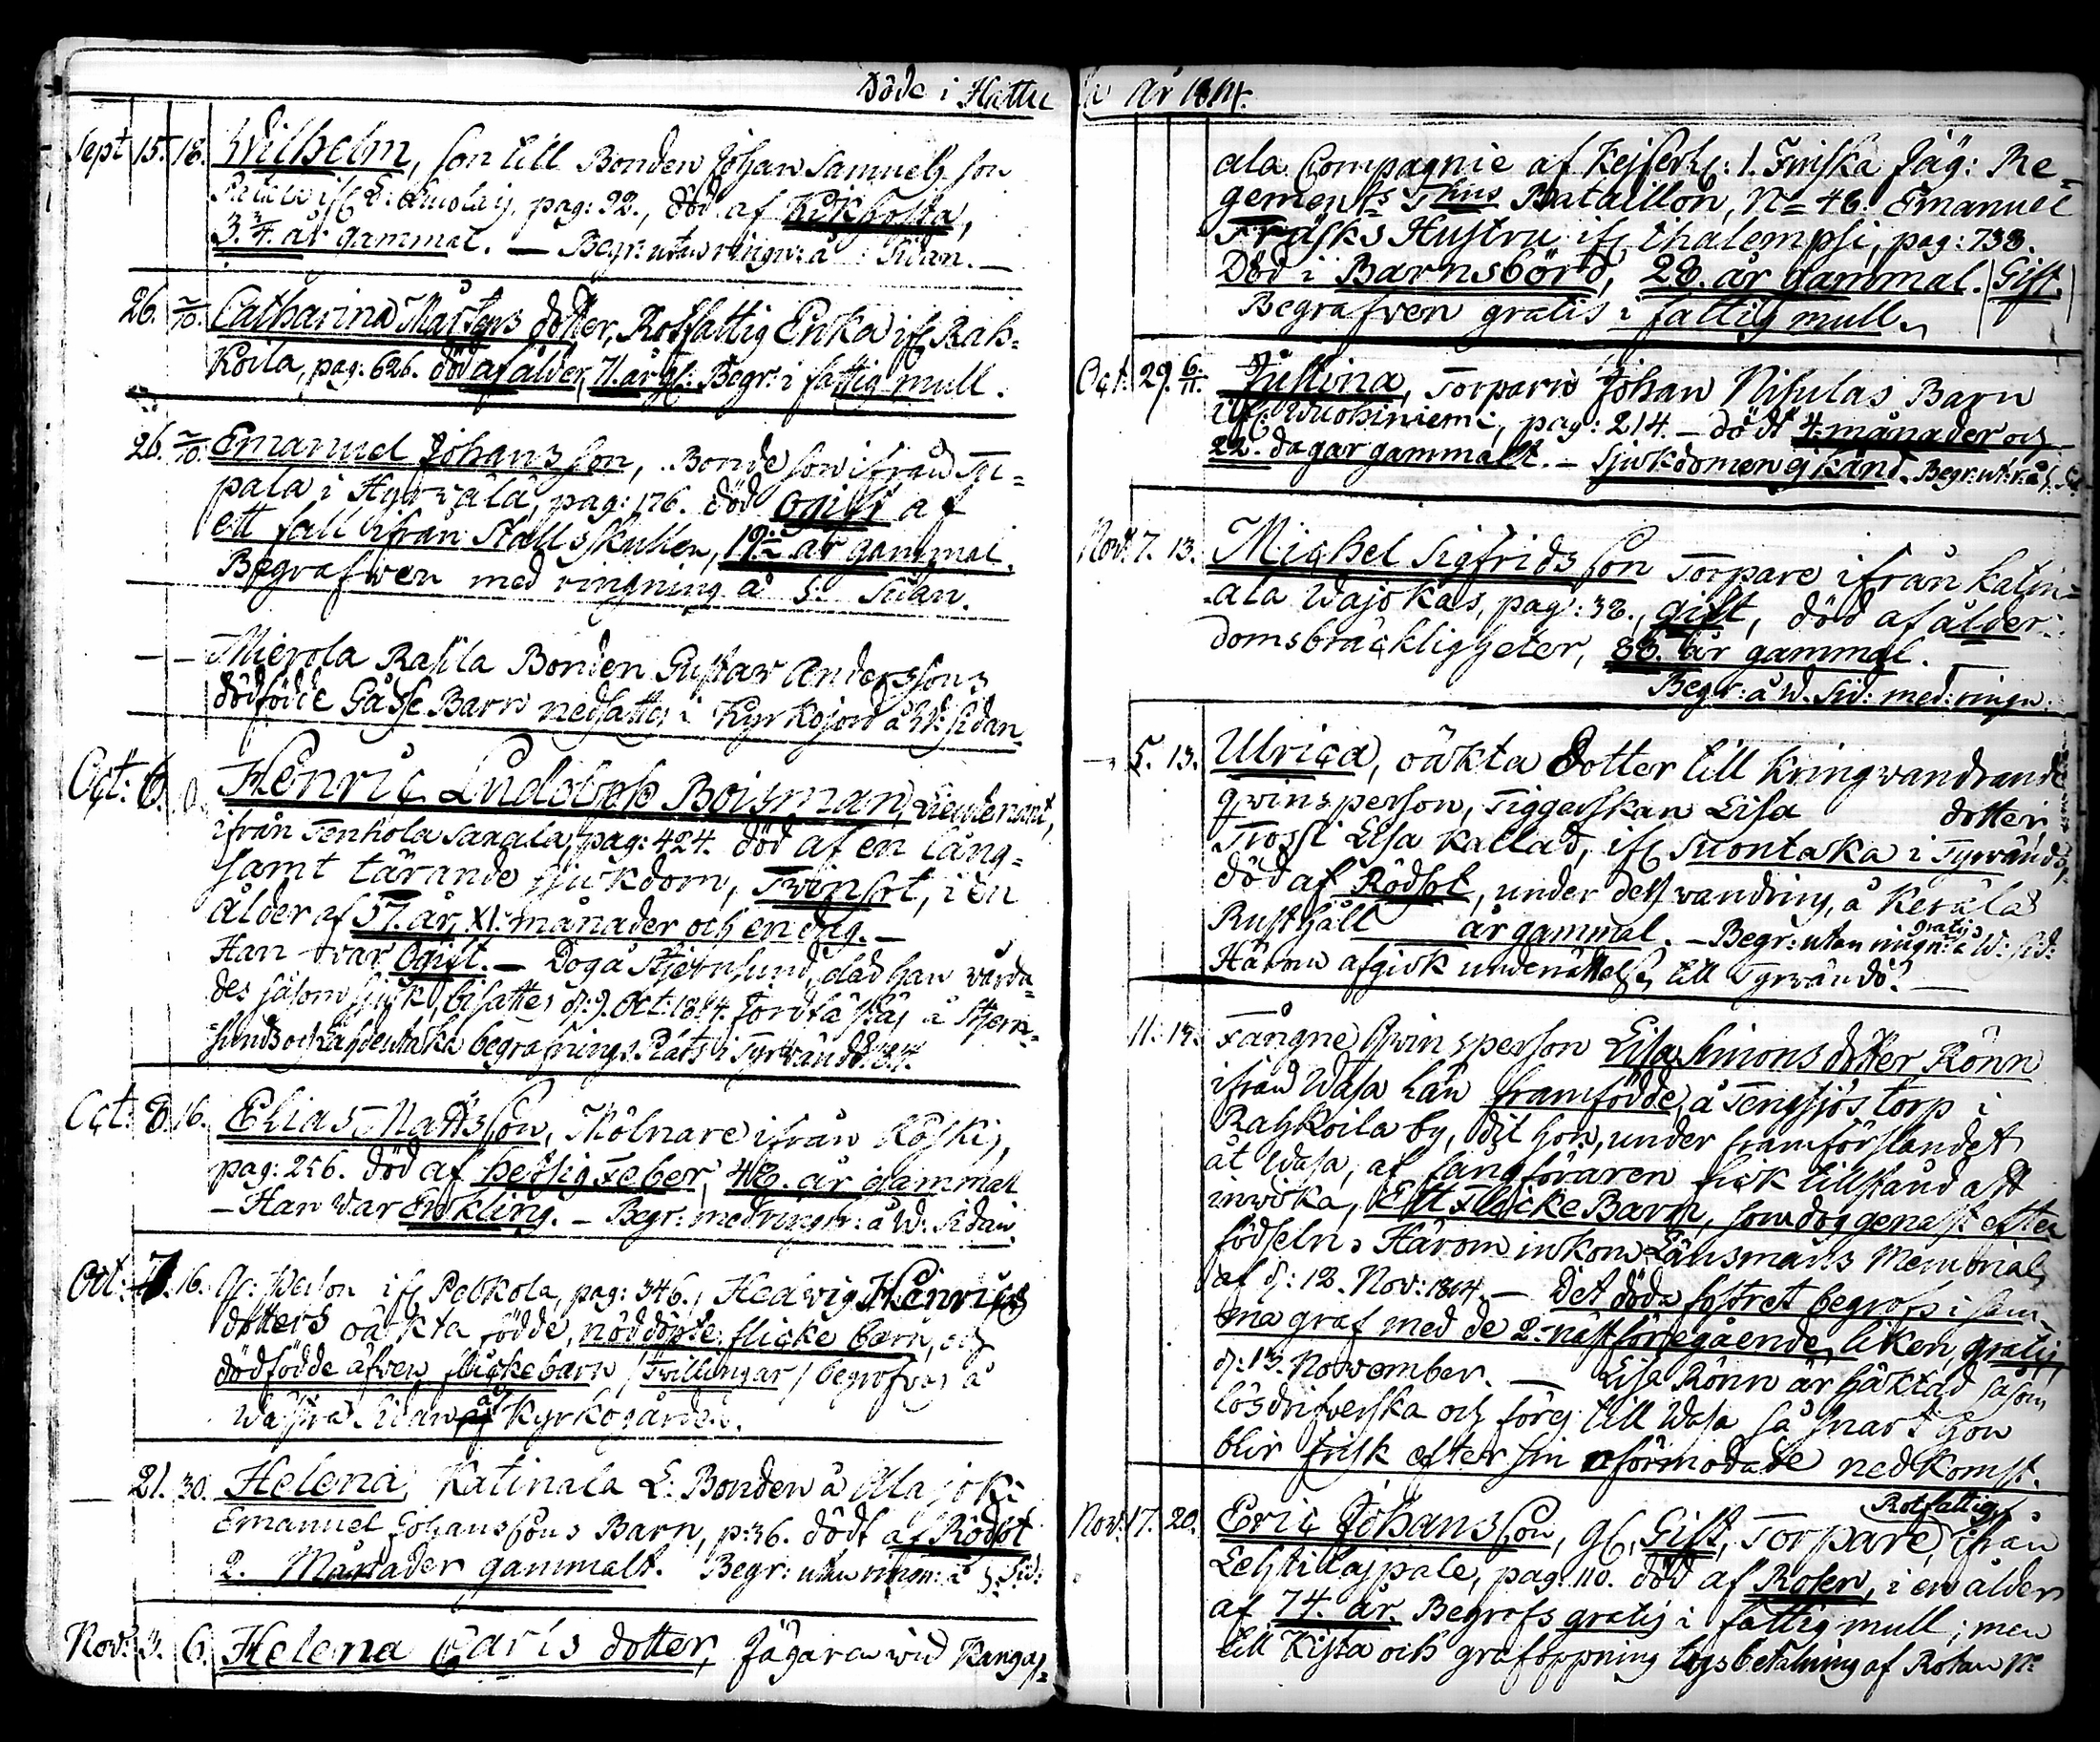 Döde i Hattu
Sept 15. 18. Wilhelm, son till Bonden Johan Samuels son
pag: 92., död af Kikhosta,
3. 3/4. år gammal. — Begr: utan ringn: å Sidan. —
26. 2/10. Catharina Mårtens dotter, Rotfattig Enka ifr Rah=
koila, pag: 626. död af ålder, 71. år gl: Begr: i fattig mull.
26. 2/10. Emanuel Johans son, Bonde son ifrån
pala i Hyrvälä, pag: 176. död ogift af
ett fall ifrån Stallskullen, 19. år gammal.
Begrafven med ringning å S: Sidan.
— — Mierola Rasila Bonden Gustav Anderssons
dödfödde Gåsse Barn nedsattes i Kyrkojord å W: Sidan
Oct: 6. Henric Ludolvph Boisman, Lieutenant,
ifrån Tenhola Saxala, pag: 424. död af en lång=
samt tärande sjukdom, Twinsot, i en
ålder af 57. år, XI. månader och en dag. —
Han war Ogift. — Dog å Stjernsund, där han wårda=
des såsom sjuk, bisattes d: 9. Oct: 1814. Jordfästes å Stjern=
sunds och begrafnings Plats i Tyrwändö.
Oct: 8. 16. Elias Matts son, Mölnare ifrån
pag: 256. död af hetsig Feber, 48. år gammal
— Han war Enkling. — Begr: med ringn: å W: Sidan.
Oct: 7. 16. Q: Person ifr Pelkola, pag: 346., Hedvig Henrics
dotters oäkta födde, nöddöpte flicke barn, och
dödfödde äfven flickebarn / Trillingar / begrofvos å
Wästra Sidan af Kyrkogården.
— 21. 30. Helena, Katinala L: Bonden å Alajoki
Emanuel Johanssons Barn, p: 36. dödt af Rödsot
2. Månader gammalt. Begr: utan ringn: å S: Sid:
Nov: 3. 6. Helena Caris dotter, Jägaren wid Kangas=
la År 1814.
ala Compagnie af Kejserl: 1. Finska Jäg: Re=
gements Bataillon, No 46. Emanuel
Träsks Hustru ifr Ihalempsi, pag: 738.
Död i Barnsbörd, 28. år gammal. / Gift. /
Begrafven gratis i fattig mull.
Oct: 29. 6/11. Justina, Torparn Johan Nikulas Barn
ifr: Wuohiniemi, pag: 214. — dödt 4. månader och
22. dagar gammalt. — Sjukdomen ej känd. Begr: ut: r: å S. Sid
Nov: 7. 13. Michel Sigfrids son Torpare ifrån Katin=
ala Wajokas, pag: 38., gift, död af ålder=
domsbräckligheter, 86. år gammal. —
Begr: å W. Sid: med: ringn:
— 5. 13. Ulrica, oäkta Dotter till kringvandrande
qvinsperson, Tiggerskan Lisa dotter,
Trossi Lisa kallad, ifr Suontaka i Tyrwändö,
död af Rödsot, under dess vandring, å Kerälä
Rusthåll år gammal. — Begr: utan ringn: gratis å W: Sid:
Härom afgick underrättelse till Tyrwändö. —
11. 13. Fångne Qvinsperson Lisa Simons dotter Rönn
ifrån Wasa Län framfödde, å Tengsjös torp i
Rahkoila by, dit hon, under framförslandet
åt Wasa, af fångföraren fick tillstånd att
inwika, Ett Flicke Barn, som dog genast efter
födseln. Härom inkom Länsmans Memorial
af d: 12. Nov: 1814. — Det döda fostret begrofs i sam=
ma graf med de 2: näst föregående liken, gratis,
d: 13. November. — Lisa Rönn är häktad såsom
lösdrifverska och föres till Wasa så snart hon
blir frisk efter sin oförmodade nedkomst.
Nov: 17. 20. Eric Johans son, gl, Gift, Torpare, Rotfattig, ifrån
pag: 110. död af Rosen, i en ålder
af 74. år. Begrofs gratis i fattig mull; men
till Kista och graföppning togs betalning af Rotan No